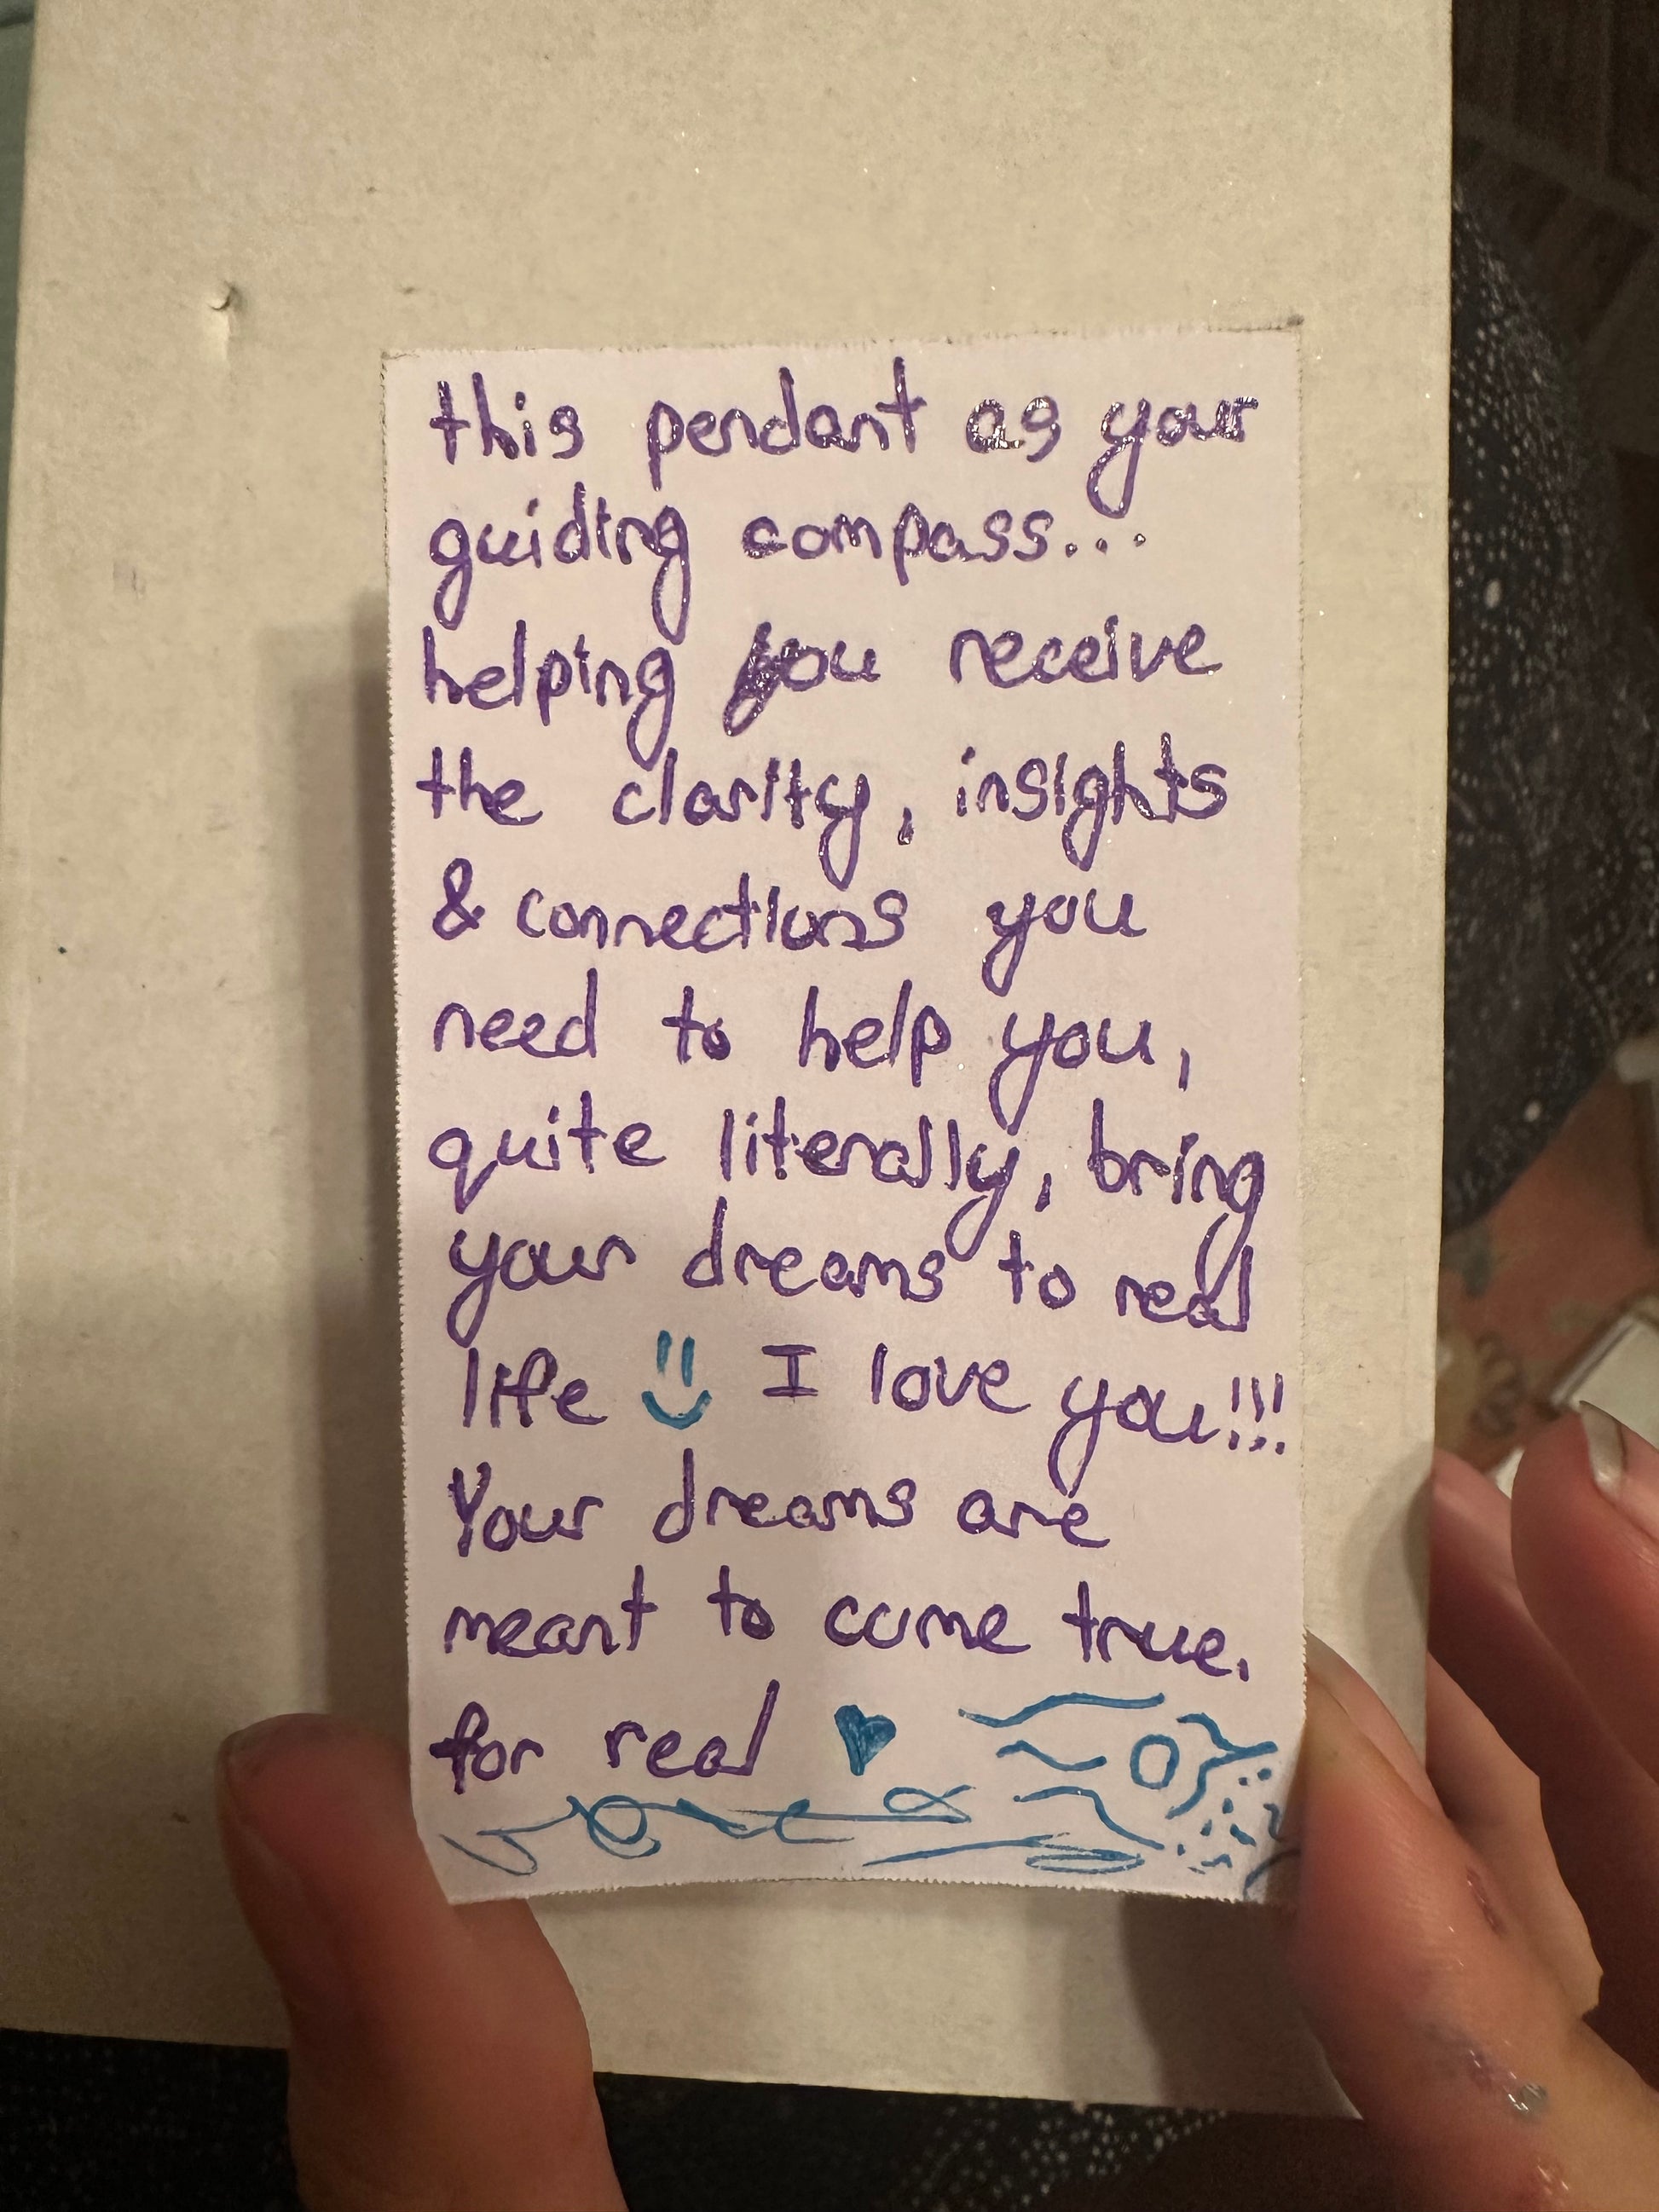 this pendant as your
guiding compass...
helping you receive
the clarity, insights
& connections you
need to help you,
quite literally, bring
your dreams to real
life I love you!!!
Your dreams are
meant to come true.
for real